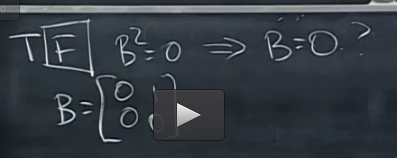 T F B² = 0 ⇒ B = 0.?
B = [0
0 0]